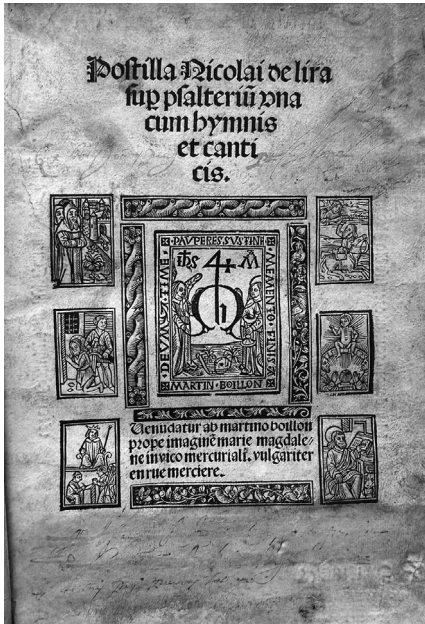 Postilla Nicolai de lira
sup̲ psalteriū vna
cum hymnis
et canti
cis.
PAVPERES·SVSTINE
MEMENTO·FINIS
DEVM·TIME
ihs
M
MARTIN BOILLON
Venūdatur ab martino boillon
prope imaginē marie magdale⸗
ne in vico mercuriali. vulgariter
en rue merciere.